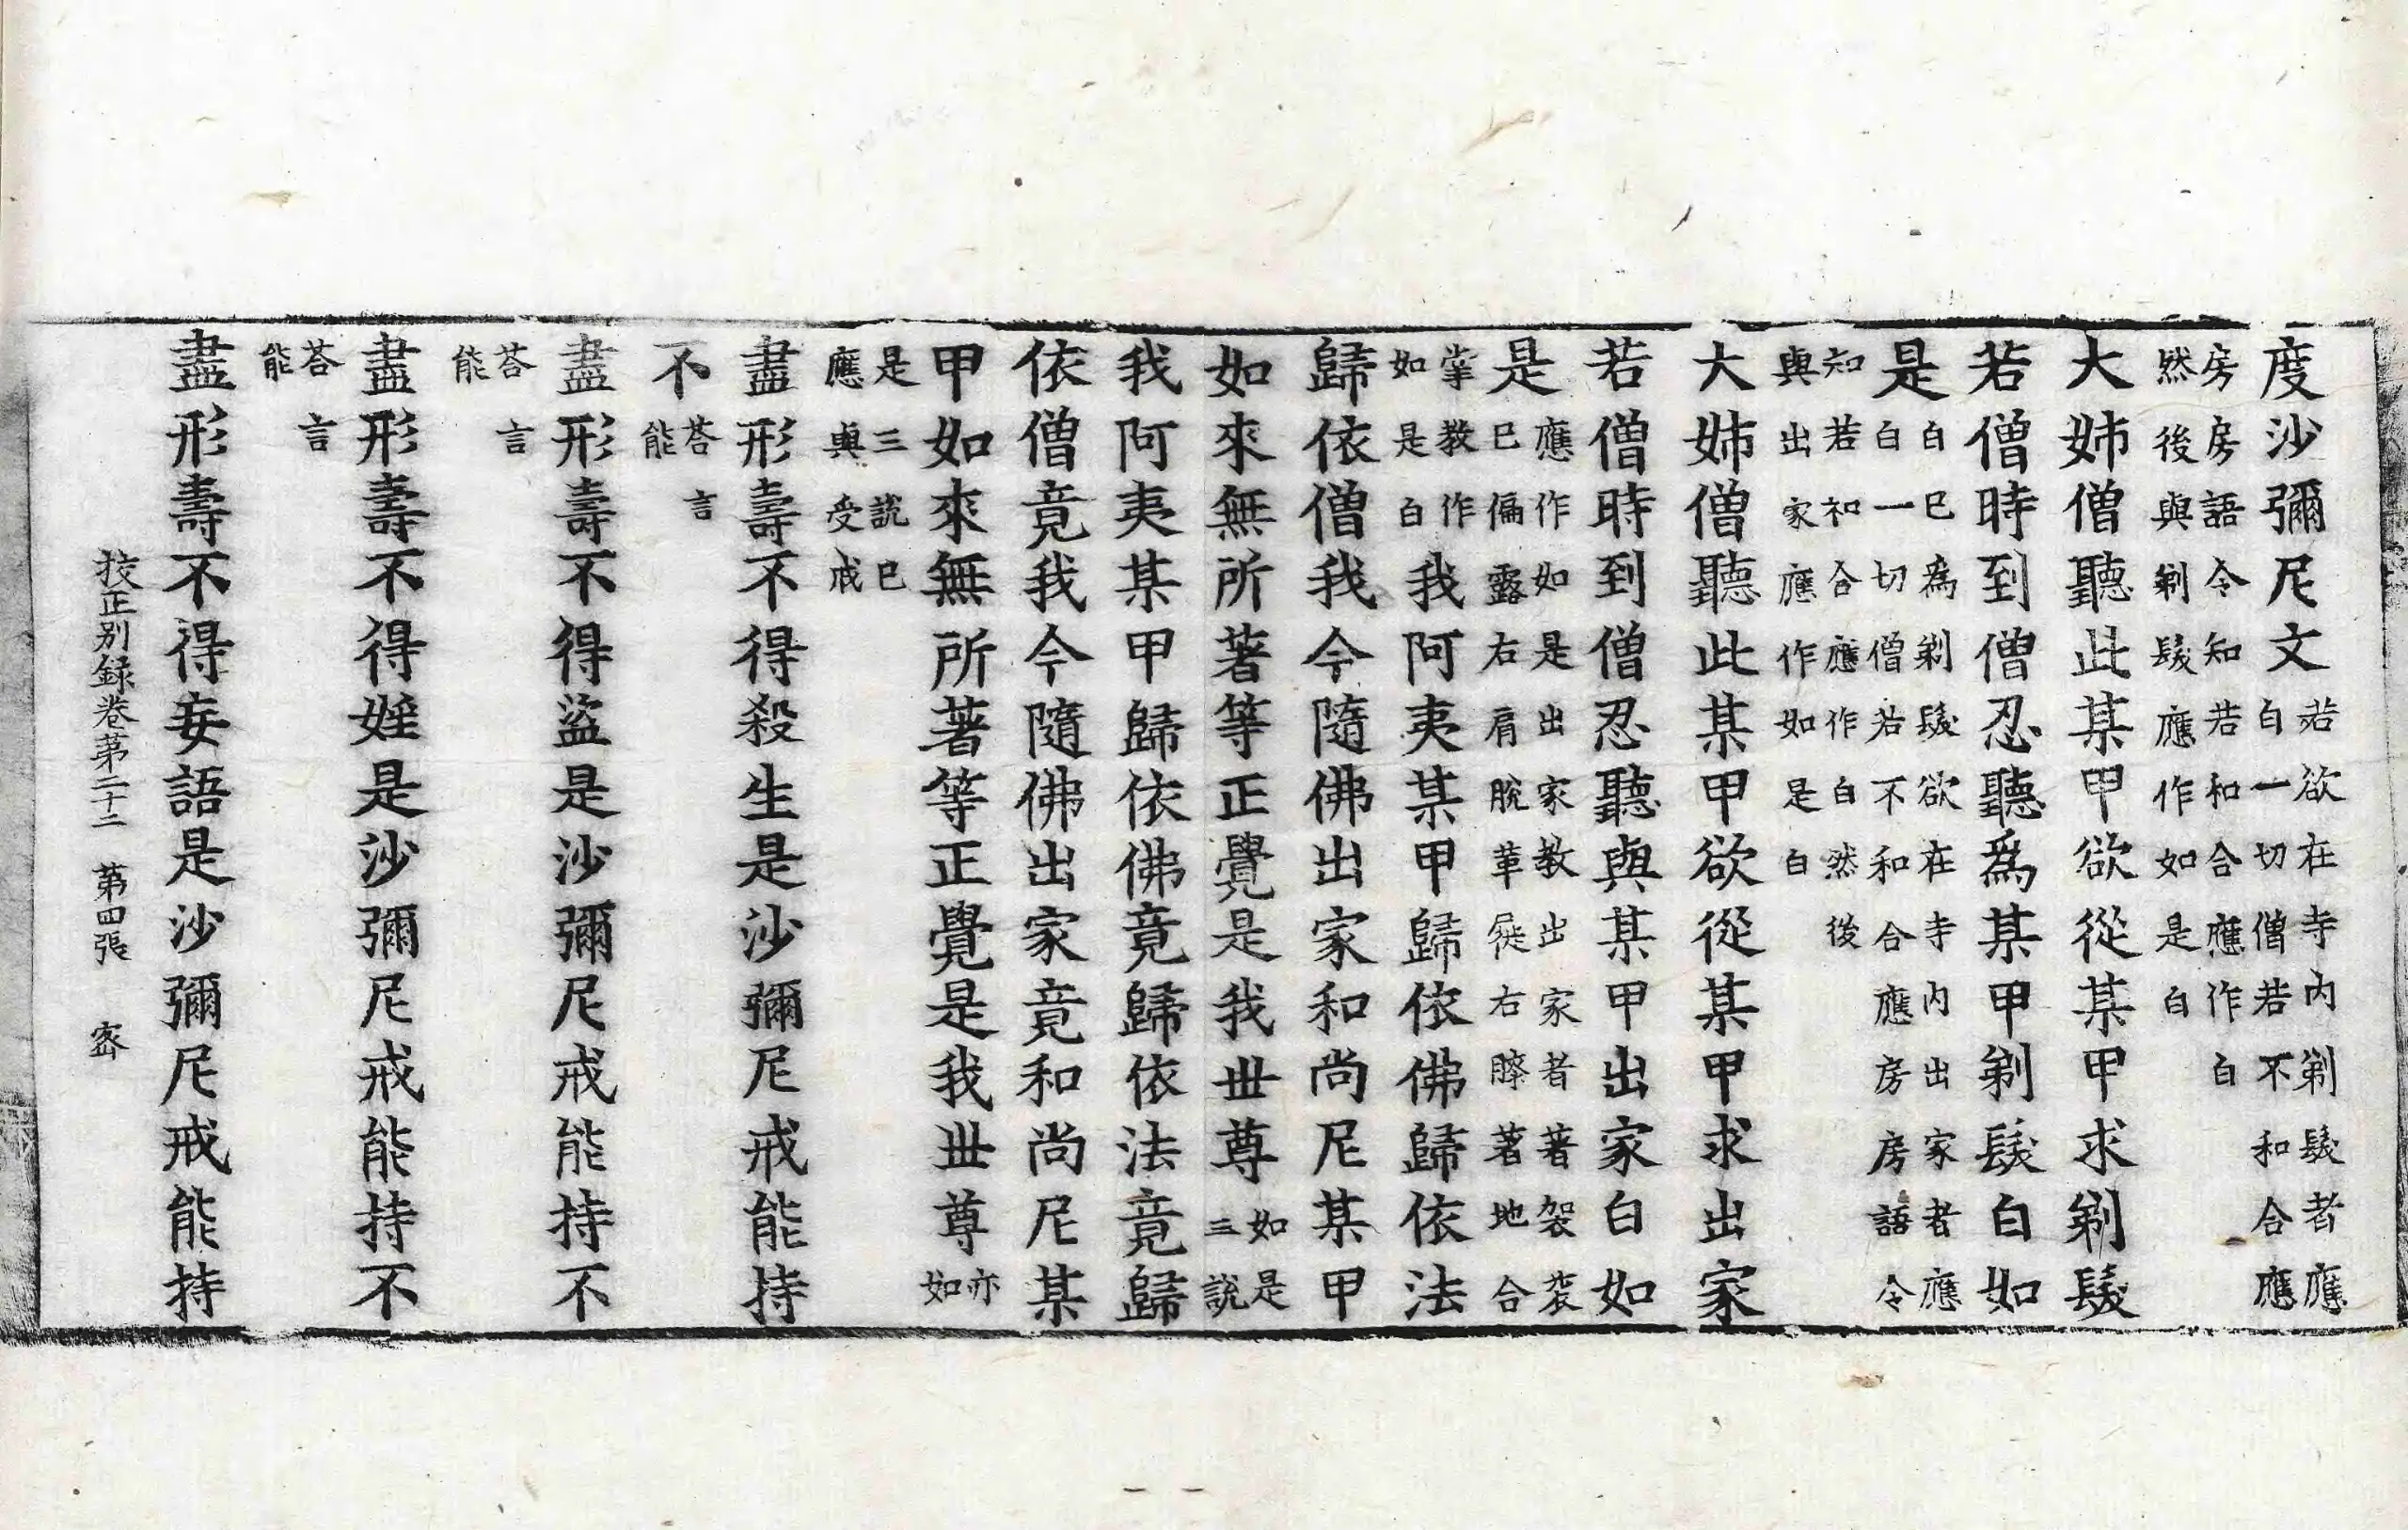 度沙彌尼文若欲在寺內剃髮者應白一切僧若不和合應
房房語令知若和合應作白然後與剃髮應作如是白
大姉僧聽此某甲欲從某甲求剃髮
若僧時到僧忍聽爲某甲剃髮白如
是白已爲剃髮欲在寺內出家者應白一切僧若不和合應房房語令
知若和合應作白然後與出家應作如是白
大姉僧聽此某甲欲從某甲求出家
若僧時到僧忍聽與某甲出家白如
是應作如是出家教出家者著袈裟已偏露右肩脫革屣右膝著地合
掌教作如是白我阿夷某甲歸依佛歸依法
歸依僧我今隨佛出家和尚尼某甲
如來無所著等正覺是我世尊如是三說
我阿夷某甲歸依佛竟歸依法竟歸
依僧竟我今隨佛出家竟和尚尼某
甲如來無所著等正覺是我世尊亦如
是三說已應與受戒
盡形壽不得殺生是沙彌尼戒能持
不荅言能
盡形壽不得盜是沙彌尼戒能持不
荅言能
盡形壽不得婬是沙彌尼戒能持不
荅言能
盡形壽不得妄語是沙彌尼戒能持
挍正别録卷第二十二 第四張 密